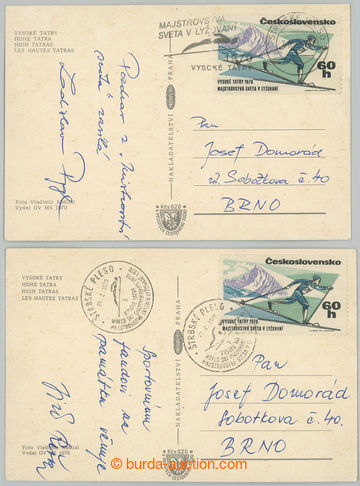 VYSOKÉ TATRY
HOHE TATRA
HIGH TATRAS
LES HAUTES TATRAS
Pozdrav z „Mistrovství
světa" zasílá
Ladislav
Foto Vladimír
Vydal OV MS 1970
NAKLADATELSTVÍ
PRAHA
Kčs 0,20
MAJSTROVSTVÁ
SVETA V LYŽOVANÍ
1970
VYSOKÉ TATRY
Československo
VYSOKÉ TATRY 1970
MAJSTROVSTVÁ SVETA V LYŽOVANÍ
60 h
Pan
Josef Domorád
ul. Sobotkova č. 40
BRNO
VYSOKÉ TATRY
HOHE TATRA
HIGH TATRAS
LES HAUTES TATRAS
Sportovnímu
fandovi na
památku věnuje
Foto Vladimír
Vydal OV MS 1970
NAKLADATELSTVÍ
PRAHA
Kčs 0,20
ŠTRBSKÉ PLESO
21.2.1970
ŠTRBSKÉ PLESO
Československo
VYSOKÉ TATRY 1970
MAJSTROVSTVÁ SVETA V LYŽOVANÍ
60 h
Pan
Josef Domorád
Sobotkova č. 40.
BRNO
burda-auction.com